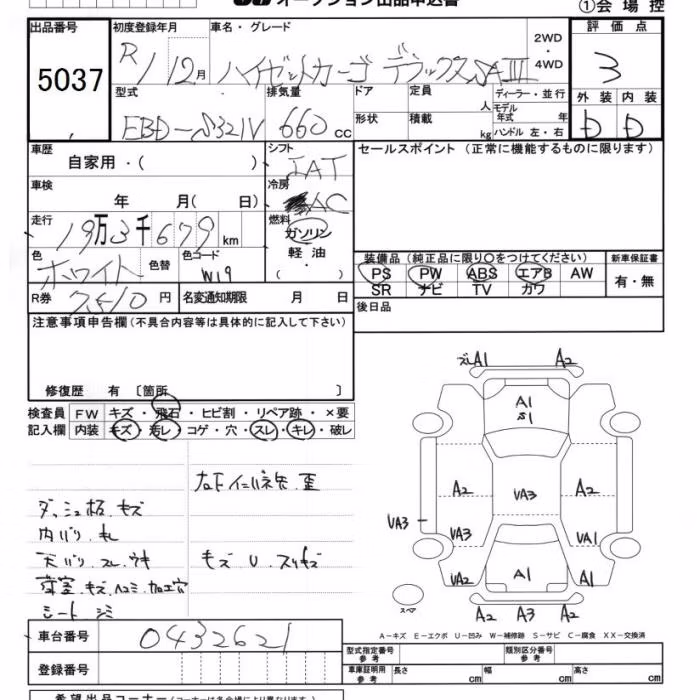 オークション出品申込書
①会場控
出品番号 5037
初度登録年月 R1/12月
車名・グレード ハイゼットカーゴ デラックスSAⅢ
2WD・4WD
評価点 3
外装 内装
D D
型式 EBD-S321V
排気量 660 cc
ドア 形状
定員 人
積載 kg
ディーラー・並行
モデル年式 年
ハンドル 左・右
車歴 自家用・( )
シフト IAT
セールスポイント (正常に機能するものに限ります)
車検 年 月( 日)
冷房 AC
走行 19万3千679km
燃料 ガソリン・軽油・( )
色 ホワイト
色替
色コード W19
装備品 (純正品に限り○をつけてください) 新車保証書
PS PW ABS エアB AW 有・無
SR ナビ TV カワ
R券 7510円
名変通知期限 月 日
後日品
注意事項申告欄(不具合内容等は具体的に記入して下さい)
修復歴 有 〔箇所 〕
検査員 FW キズ・飛石・ヒビ割・リペア跡・×要
記入欄 内装 キズ・汚レ・コゲ・穴・スレ・キレ・破レ
ダッシュ板.キズ
内バリ.キレ
天バリ.スレ.ウキ
荷室.キズ.ヘコミ.加工穴
シート シミ
キズ U.スリキズ
ズレA1 A2
A1
S1
A2 VA3 A2
VA3
VA3 VA1
VA2 A1 A1
スペア
A2 A3 A2
A-キズ E-エクボ U-凹み W-補修跡 S-サビ C-腐食 XX-交換済
車台番号 0432621
登録番号
型式指定番号 参考
類別区分番号 参考
車庫証明用 参考 長さ cm 幅 cm 高さ cm
希望出品コーナー